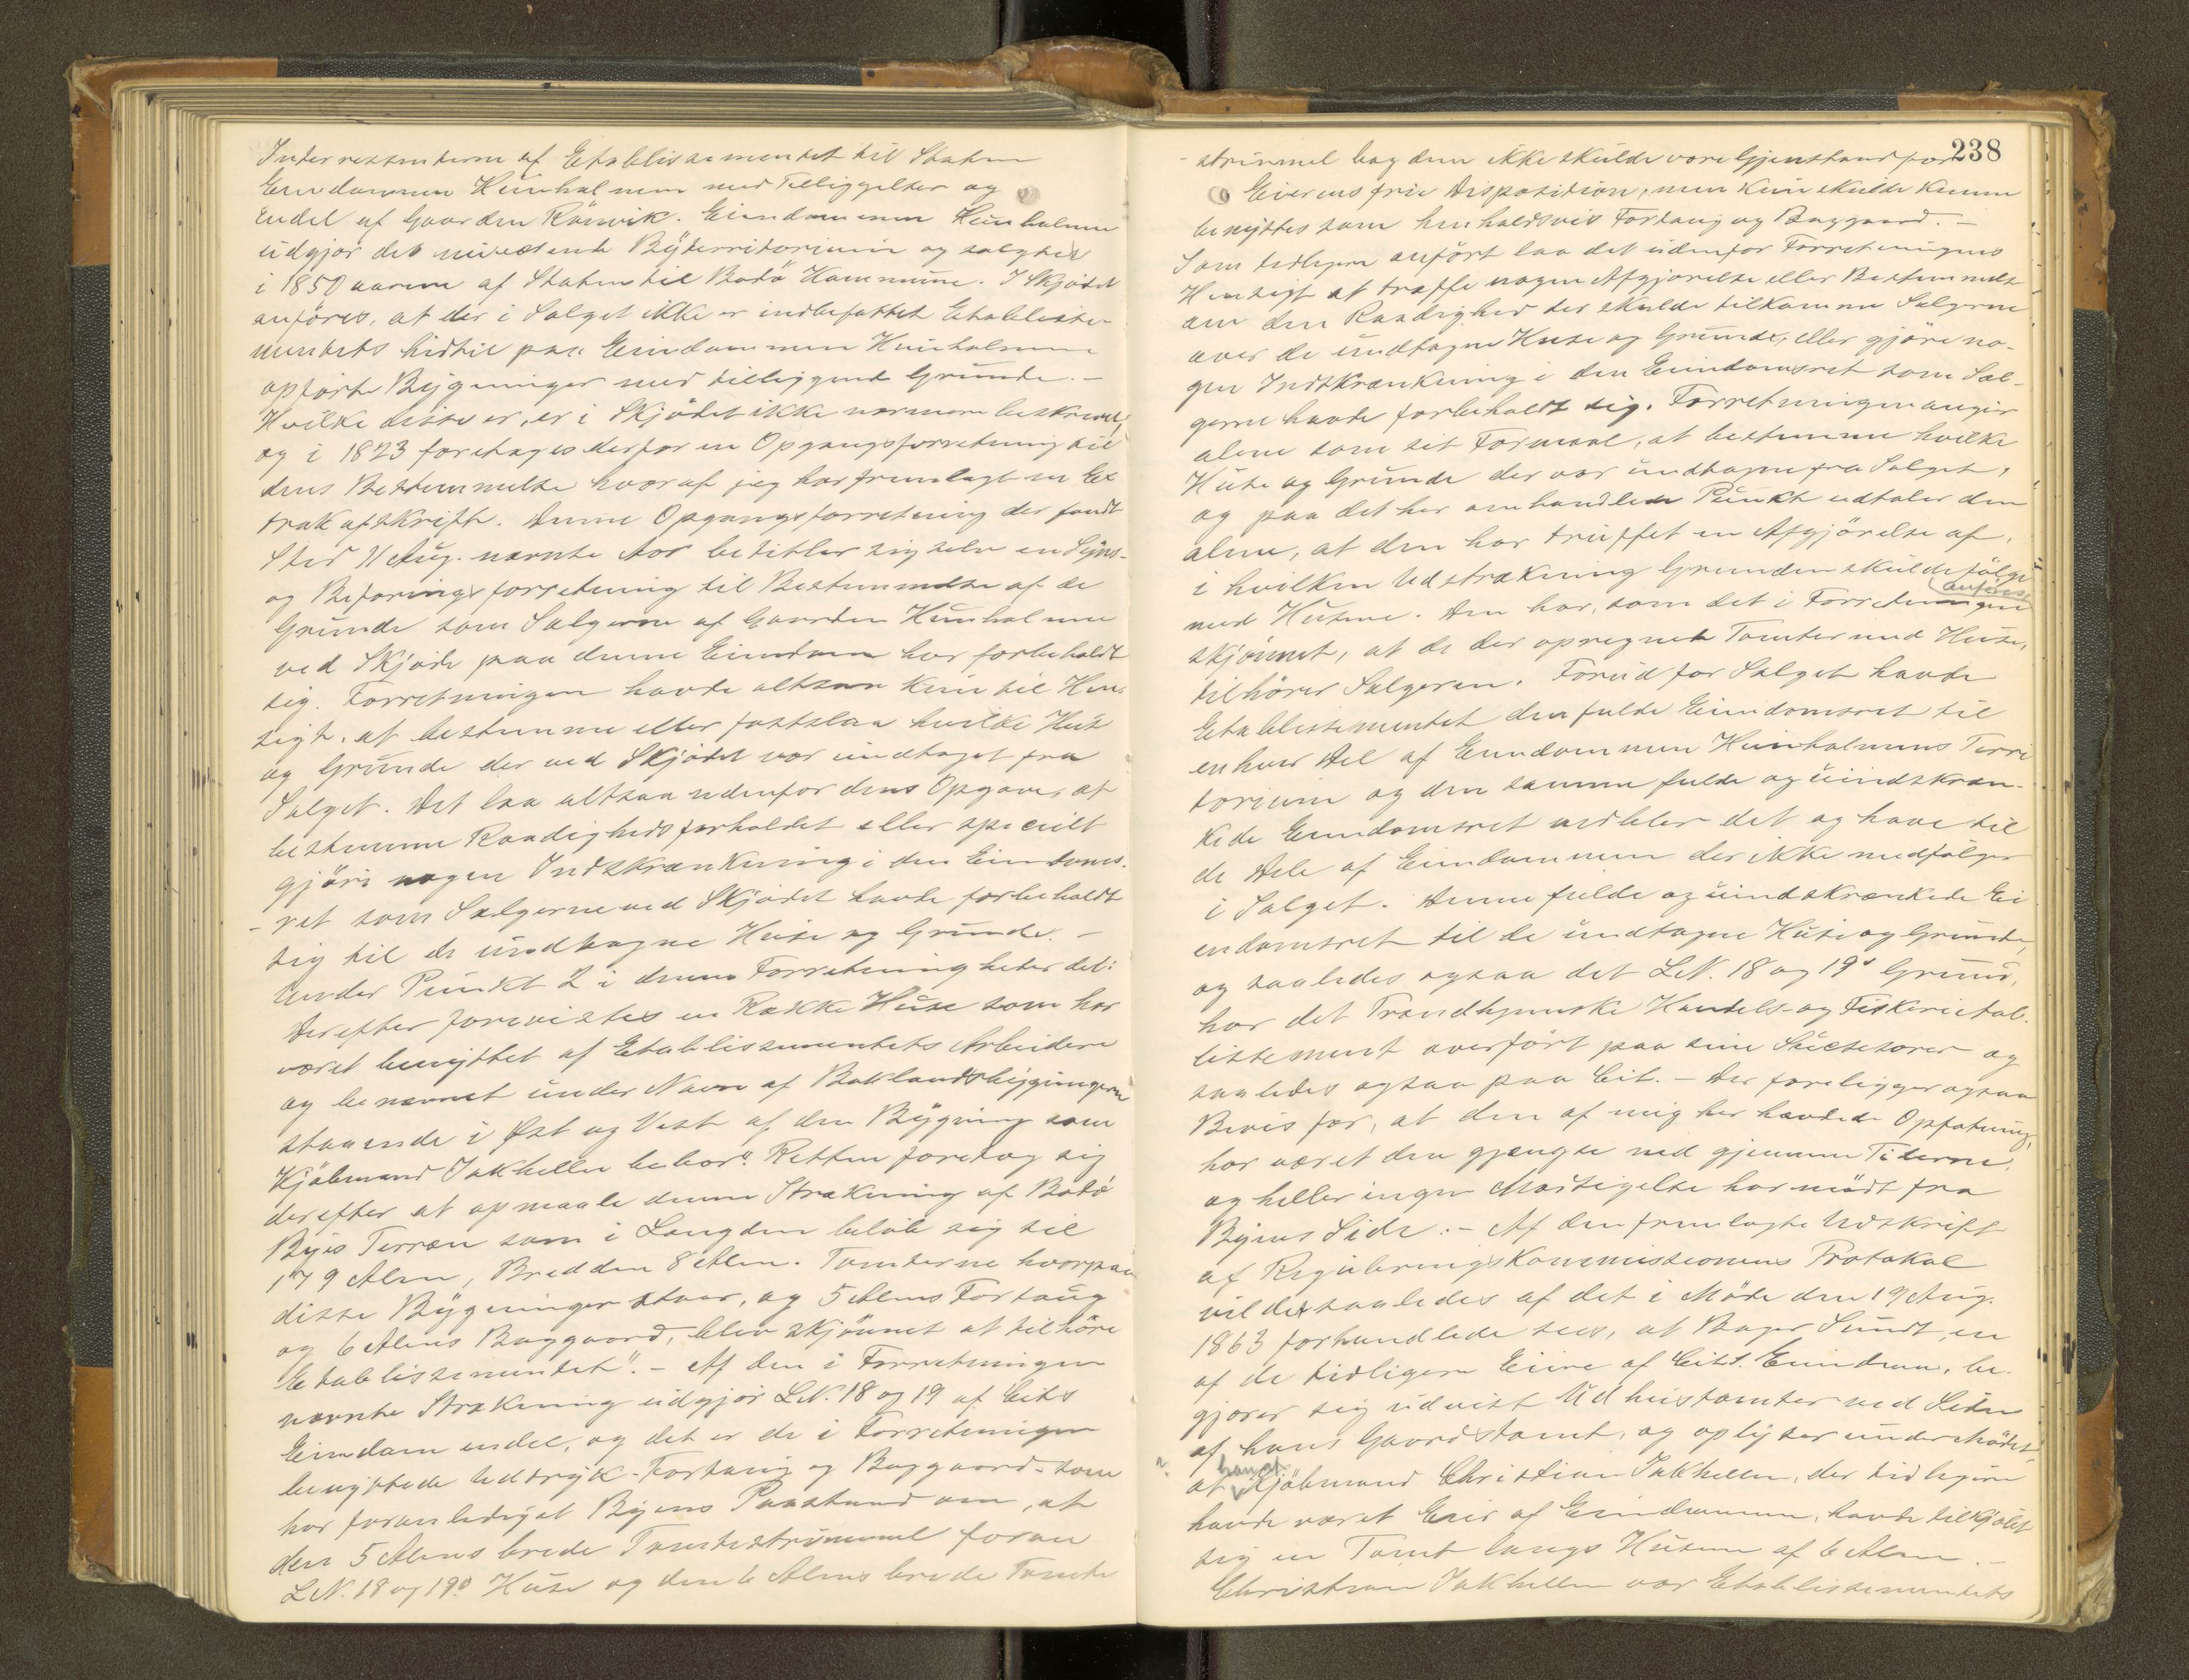 Interressenterne af Etablissementet til Staten
Eiendommen Hunholmen med Tilliggelser og
endel af Gaarden Rönvik. Eiendommen Hunholmen
udgjör det nuværende Byterritorium og solgtes
i 1850 aarene af Staten til Bodö Kommune. I Skjödet
anföres, at der i Salget ikke er indbefattet Etablisse-
mentets hidtil paa Eiendommen Hunholmen
opförte Bygninger med tilliggende Grunde.-
Hvilke disse er, er i Skjödet ikke nærmere beskrevet,
og i 1823 foretages derfor en Opgangsforretning til
dens Bestemmelse hvoraf jeg har fremlagt en Ex
trakafskrift. Denne Opgangsforretning der fandt
Sted 11 Aug. nævnte Aar betitler sig selv en Syns-
og Befaringsforretning til Bestemmelse af de
Grunde som Sælgerne af Gaarden Hunholmen
ved Skjöde paa denne Eiendom har forbeholdt
sig. Forretningen havde altsaa kun til Hen-
sigt, at bestemme eller fastslaa hvilke Hus
og Grunde der ved Skjödet var undtaget fra
Salget. Det laa altsaa udenfor dens Opgave, at
bestemme Raadighedsforholdet eller specielt
gjöre nogen Indskrænkning i den Eiendoms-
-ret som Sælgerne ved Skjödet havde forbeholdt
sig til de undtagne Huse og Grunde.-
Under Punkt 2 i denne Forretning heter det:
Derefter forevistes en Række Huse som har
været benyttet af Etablissementets Arbeidere
og benævnet under Navn af Baklandsbygningerne
staaende i Øst og Vest af den Bygning som
Kjöbmand Jakhelln bebor". Retten foretog sig
derefter at opmaale denne Strækning af Bodö
Byes Terræn som i Længden belöb sig til
179 Alen, Bredden 8 Alen. Tomterne hvorpaa
disse Bygninger staar, og 5 Alens Fortaug
og 6 Alens Baggaard, blev skjönnet at tilhöre
Etablissementet".- Af den i Forretningen
nævnte Strækning udgjör LN. 18 og 19 af Cits
Eiendom endel, og det er de i Forretningen
benyttede Udtryk - Fortaug og Baggaard - som
har foranlediget Byens Paastand om, at
den 5 Alens brede Tomtestrimmel foran
LN. 18 og 19s Huse og den 6 Alens brede Tomte
238
-strimmel bag dem ikke skulde være Gjenstand for
Eierens frie Disposition, men kun skulde kunne
benyttes som henholdsvis Fortaug og Baggaard.-
Som tidligere anfört laa det udenfor Forretningens
Hensigt at træffe nogen Afgjörelse eller Bestemmelse
om den Raadighed der skulde tilkomme Sælgerne
over de undtagne Huse og Grunde, eller gjöre no-
gen Indskrænkning i den Eiendomsret som Sæl-
gerne havde forbeholdt sig. Forretningen angir
alene som sit Formaal, at bestemme hvilke
Huse og Grunde der var undtagne fra Salget,
og paa det her omhandlede Punkt udtaler den
alene, at den har truffet en Afgjörelse af,
i hvilken Udstrækning Grunden skulde fölge
med Husene. Den har, som det i Forretningen
anföres
skjönnet, at de der opregnede Tomter med Huse,
tilhörer Sælgeren. Forud for Salget havde
Etablissementet den fulde Eiendomsret til
enhver Del af Eiendommen Hunholmens Terri
torium og den samme fulde og uindskræn-
kede Eiendomsret vedblev det og have til
de Dele af Eiendommen der ikke medfölger
i Salget. Denne fulde og uindskrænkede Ei
endomsret til de undtagne Huse og Grunde,
og saaledes ogsaa det LN. 18 og 19s Grund,
har det Trondhjemske Handels- og Fiskerietab-
lissement overfört paa sine Suksessorer og
saaledes ogsaa paa Cit.- Der foreligger ogsaa
Bevis for, at den af mig her hævdede Opfatning,
har været den gjængse ned gjennem Tiderne,
og heller ingen Modsigelse har mödt fra
Byens Side.- Af den fremlagte Udskrift
af Reguleringskommissionens Protokol
vil det saaledes af det i Möde den 19 Aug.
1863 forhandlede sees, at Bager Sundt, en
af de tidligere Eiere af Cits. Eiendom, be-
gjærer sig udvist Udhustomter ved Siden
af hans Gaardstomt, og oplyser under Mödet,
at Kjöbmand Christian Jakhelln, der tidligere
havde været Eier af Eiendommen, havde tilkjöbt
sig en Tomt langs Husene af 6 Alen.-
Christian Jakhelln var Etablissementets